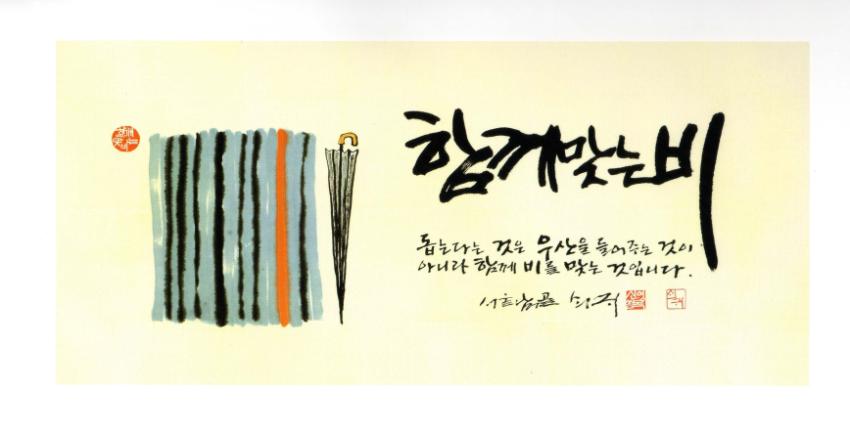 함께 맞는 비
돕는다는 것은 우산을 들어주는 것이
아니라 함께 비를 맞는 것입니다.